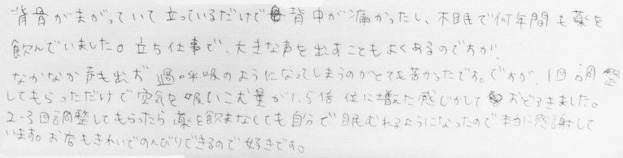 背骨がまがっていて立っているだけで背中が痛かったし、不眠で何年間も薬を
飲んでいました。立ち仕事で、大きな声を出すこともよくあるのですが
なかなか声も出ず過呼吸のようになってしまうのがとても苦かったです。ですが、1回調整
してもらっただけで空気を吸いこむ量が1.5倍位に増えた感じがしておどろきました。
2~3回調整してもらったら薬を飲まなくても自分で眠むれるようになったので本当に感謝して
います。お店もきれいでのんびりできるので好きです。